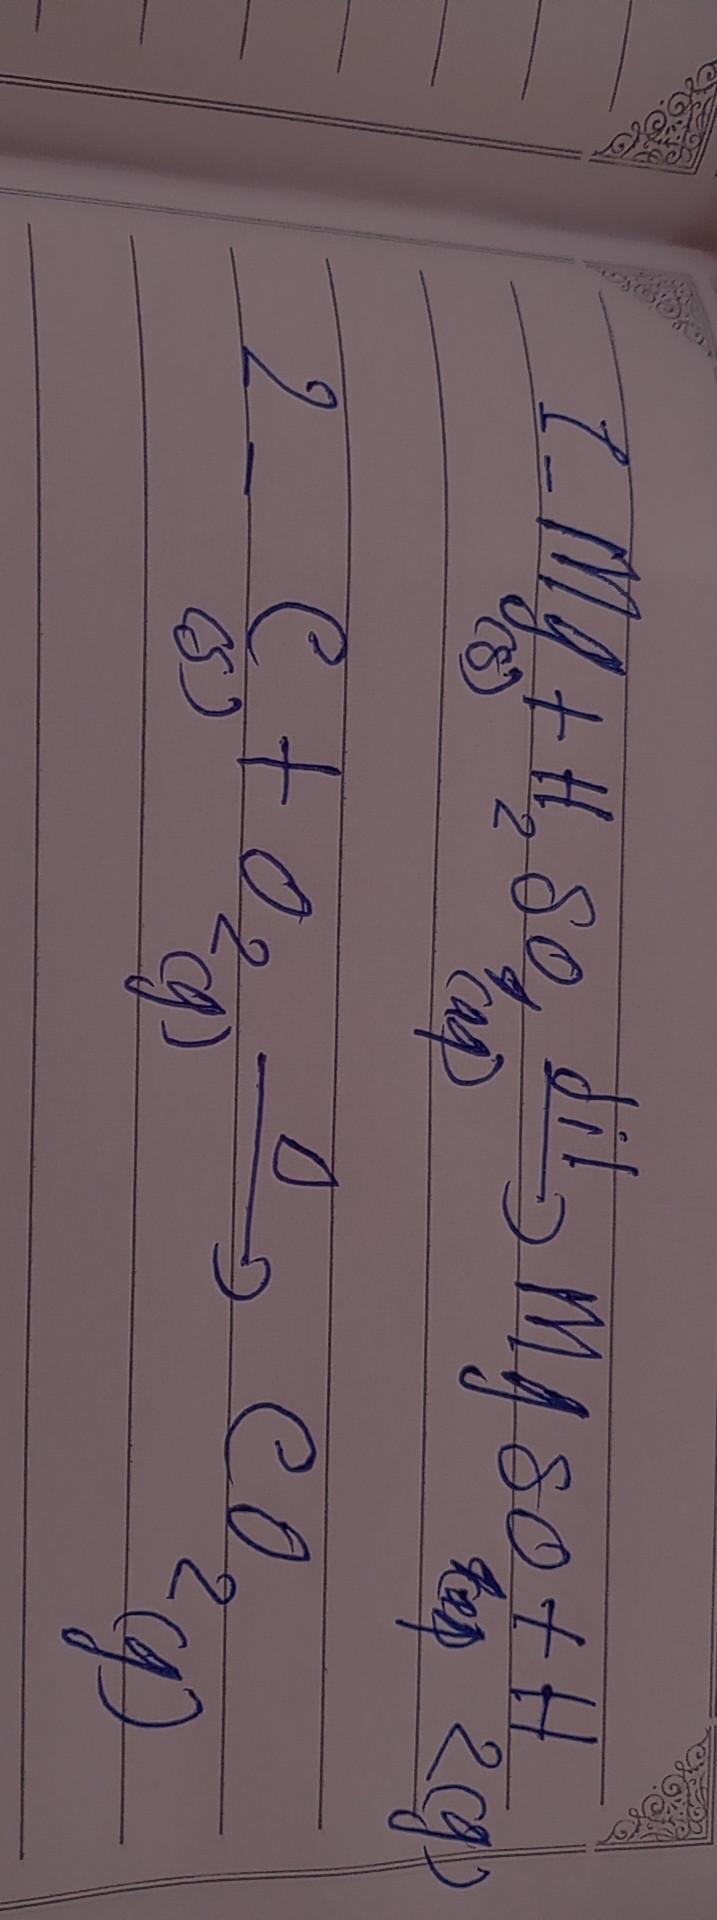 1- Mg(s) + H2SO4(aq) dil→ MgSO4(aq) + H2(g)
2- C(s) + O2(g) Δ→ CO2(g)